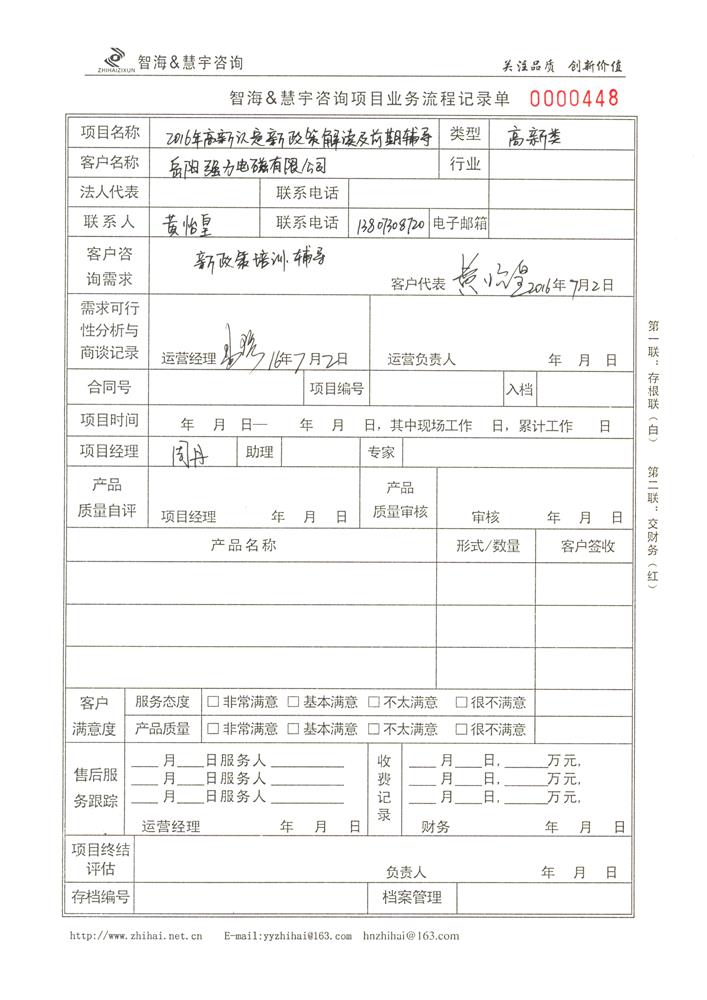 ZHIHAIZIXUN 智海&慧宇咨询 关注品质 创新价值
智海&慧宇咨询项目业务流程记录单 0000448
项目名称 2016年高新认定新政策解读及前期辅导 类型 高新类
客户名称 岳阳强力电磁有限公司 行业
法人代表 联系电话
联系人 黄怡皇 联系电话 13807308720 电子邮箱
客户咨询需求 新政策培训、辅导
客户代表 黄怡皇 2016年7月2日
需求可行性分析与商谈记录
运营经理 16年7月2日 运营负责人 年 月 日
合同号 项目编号 入档
项目时间 年 月 日— 年 月 日,其中现场工作 日,累计工作 日
项目经理 周丹 助理 专家
产品质量自评 项目经理 年 月 日 产品质量审核 审核 年 月 日
产品名称 形式/数量 客户签收
客户满意度 服务态度 □非常满意 □基本满意 □不太满意 □很不满意
产品质量 □非常满意 □基本满意 □不太满意 □很不满意
售后服务跟踪 ___月___日服务人________ 收费记录 ___月___日,_____万元,
___月___日服务人________ ___月___日,_____万元,
___月___日服务人________ ___月___日,_____万元,
运营经理 年 月 日 财务 年 月 日
项目终结评估 负责人 年 月 日
存档编号 档案管理
第一联:存根联(白) 第二联:交财务(红)
http://www.zhihai.net.cn E-mail:yyzhihai@163.com hnzhihai@163.com